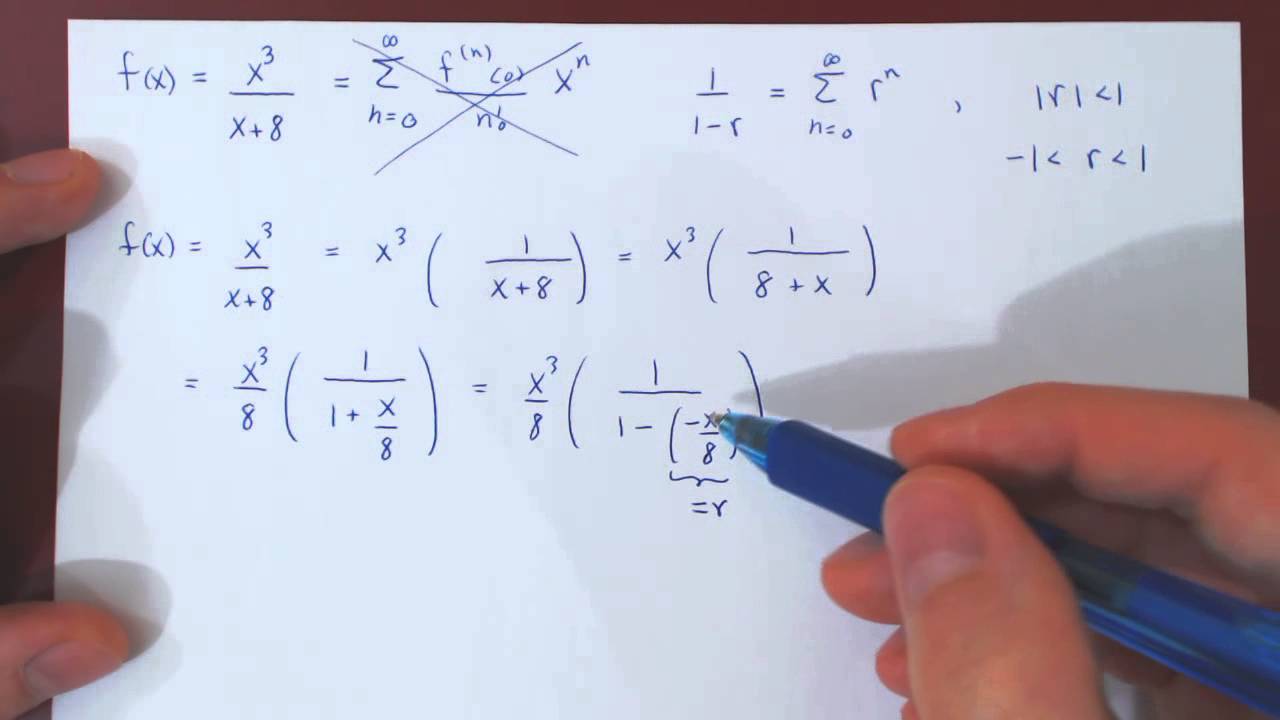 f(x) = x³/(x+8) = ∞ Σ n=0 f⁽ⁿ⁾(0)/n! xⁿ    1/(1-r) = ∞ Σ n=0 rⁿ , |r| < 1
-1 < r < 1
f(x) = x³/(x+8) = x³ ( 1/(x+8) ) = x³ ( 1/(8+x) )
= x³/8 ( 1/(1 + x/8) ) = x³/8 ( 1/(1 - (-x/8)) )
= r